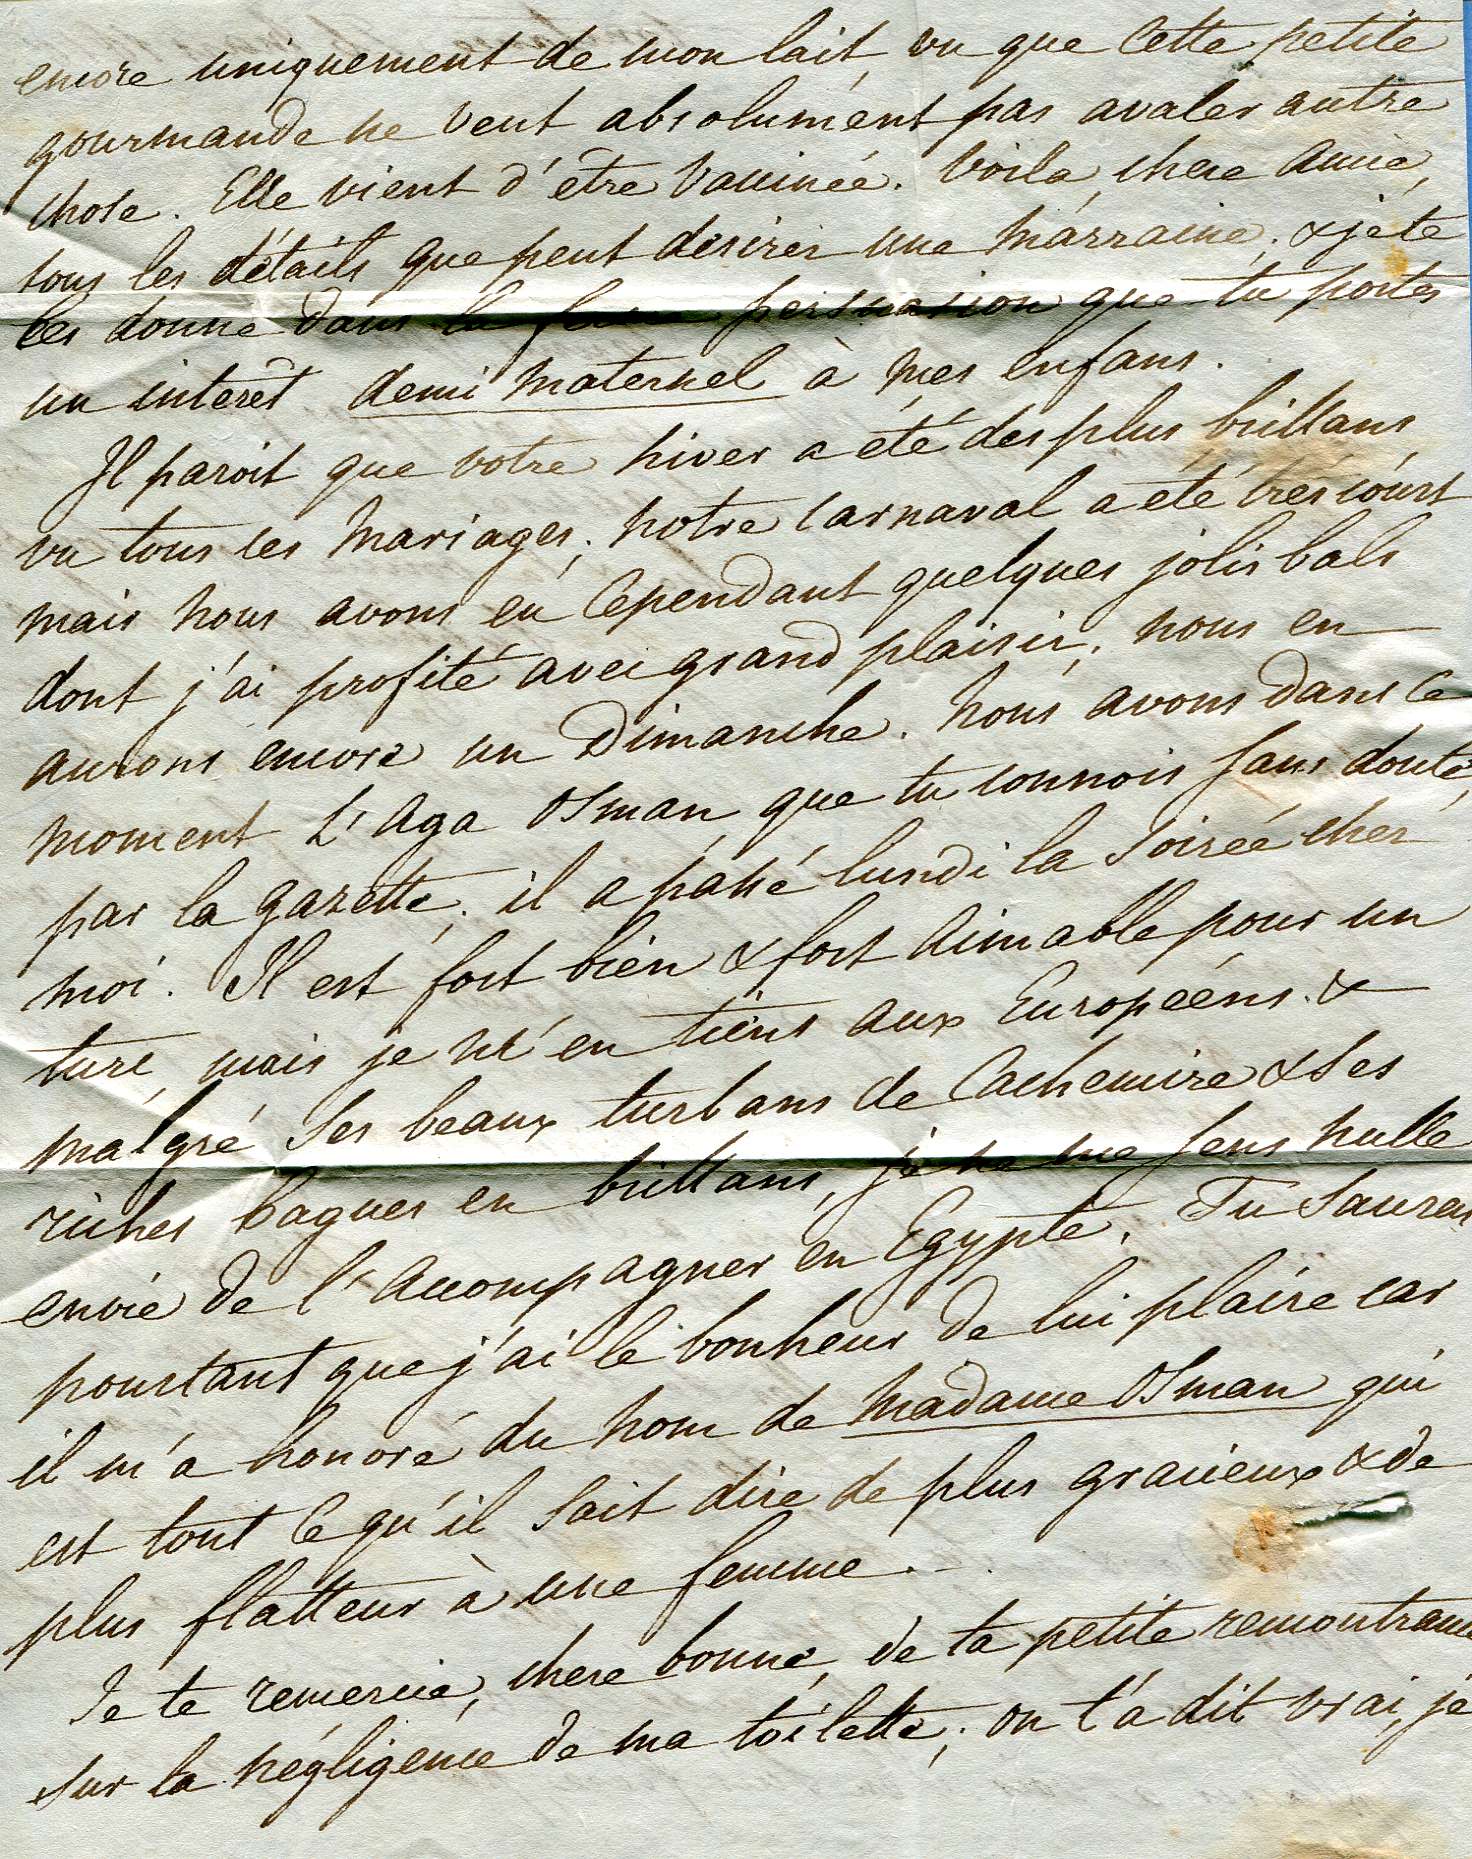 encore uniquement de mon lait, vu que cette petite
gourmande ne veut absolument pas avaler autre
chose. Elle vient d'être vaccinée. Voila, chere amie,
tous les détails que peut desirer une marraine; & je te
les donne dans la ferme persuasion que tu portes
un interêt demi maternel à mes enfans.
Il paroit que votre hiver a été des plus brillans
vu tous les mariages; notre carnaval a été très court
mais nous avons eu cependant quelques jolis bals
dont j'ai profité avec grand plaisir; nous en
aurons encore un Dimanche. Nous avons dans ce
moment L'Aga Osman, que tu connois sans doute
par la gazette; il a passé lundi la soirée chez
moi. Il est fort bien & fort aimable pour un
turc, mais je m'en tiens aux Européens. &
malgré ses beaux turbans de Cachemire & ses
riches bagues en brillans, je ne me sens nulle
envie de l'accompagner en Egypte. Tu sauras
pourtant que j'ai le bonheur de lui plaire car
il m'a honoré du nom de Madame Osman qui
est tout ce qu'il sait dire de plus gracieux & de
plus flatteur à une femme.
Je te remercie, chere bonne, de ta petite remontrance
sur la négligence de ma toilette; on t'a dit vrai, je